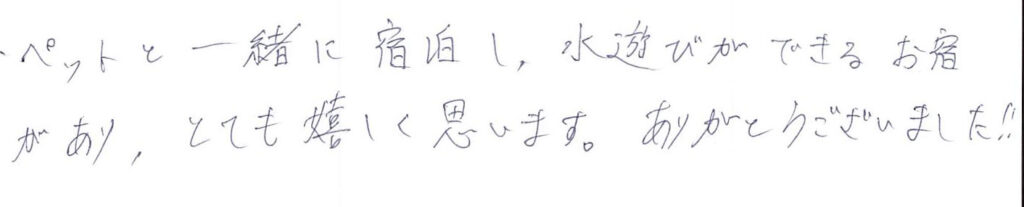 ・ペットと一緒に宿泊し、水遊びができるお宿
があり、とても嬉しく思います。ありがとうございました!!